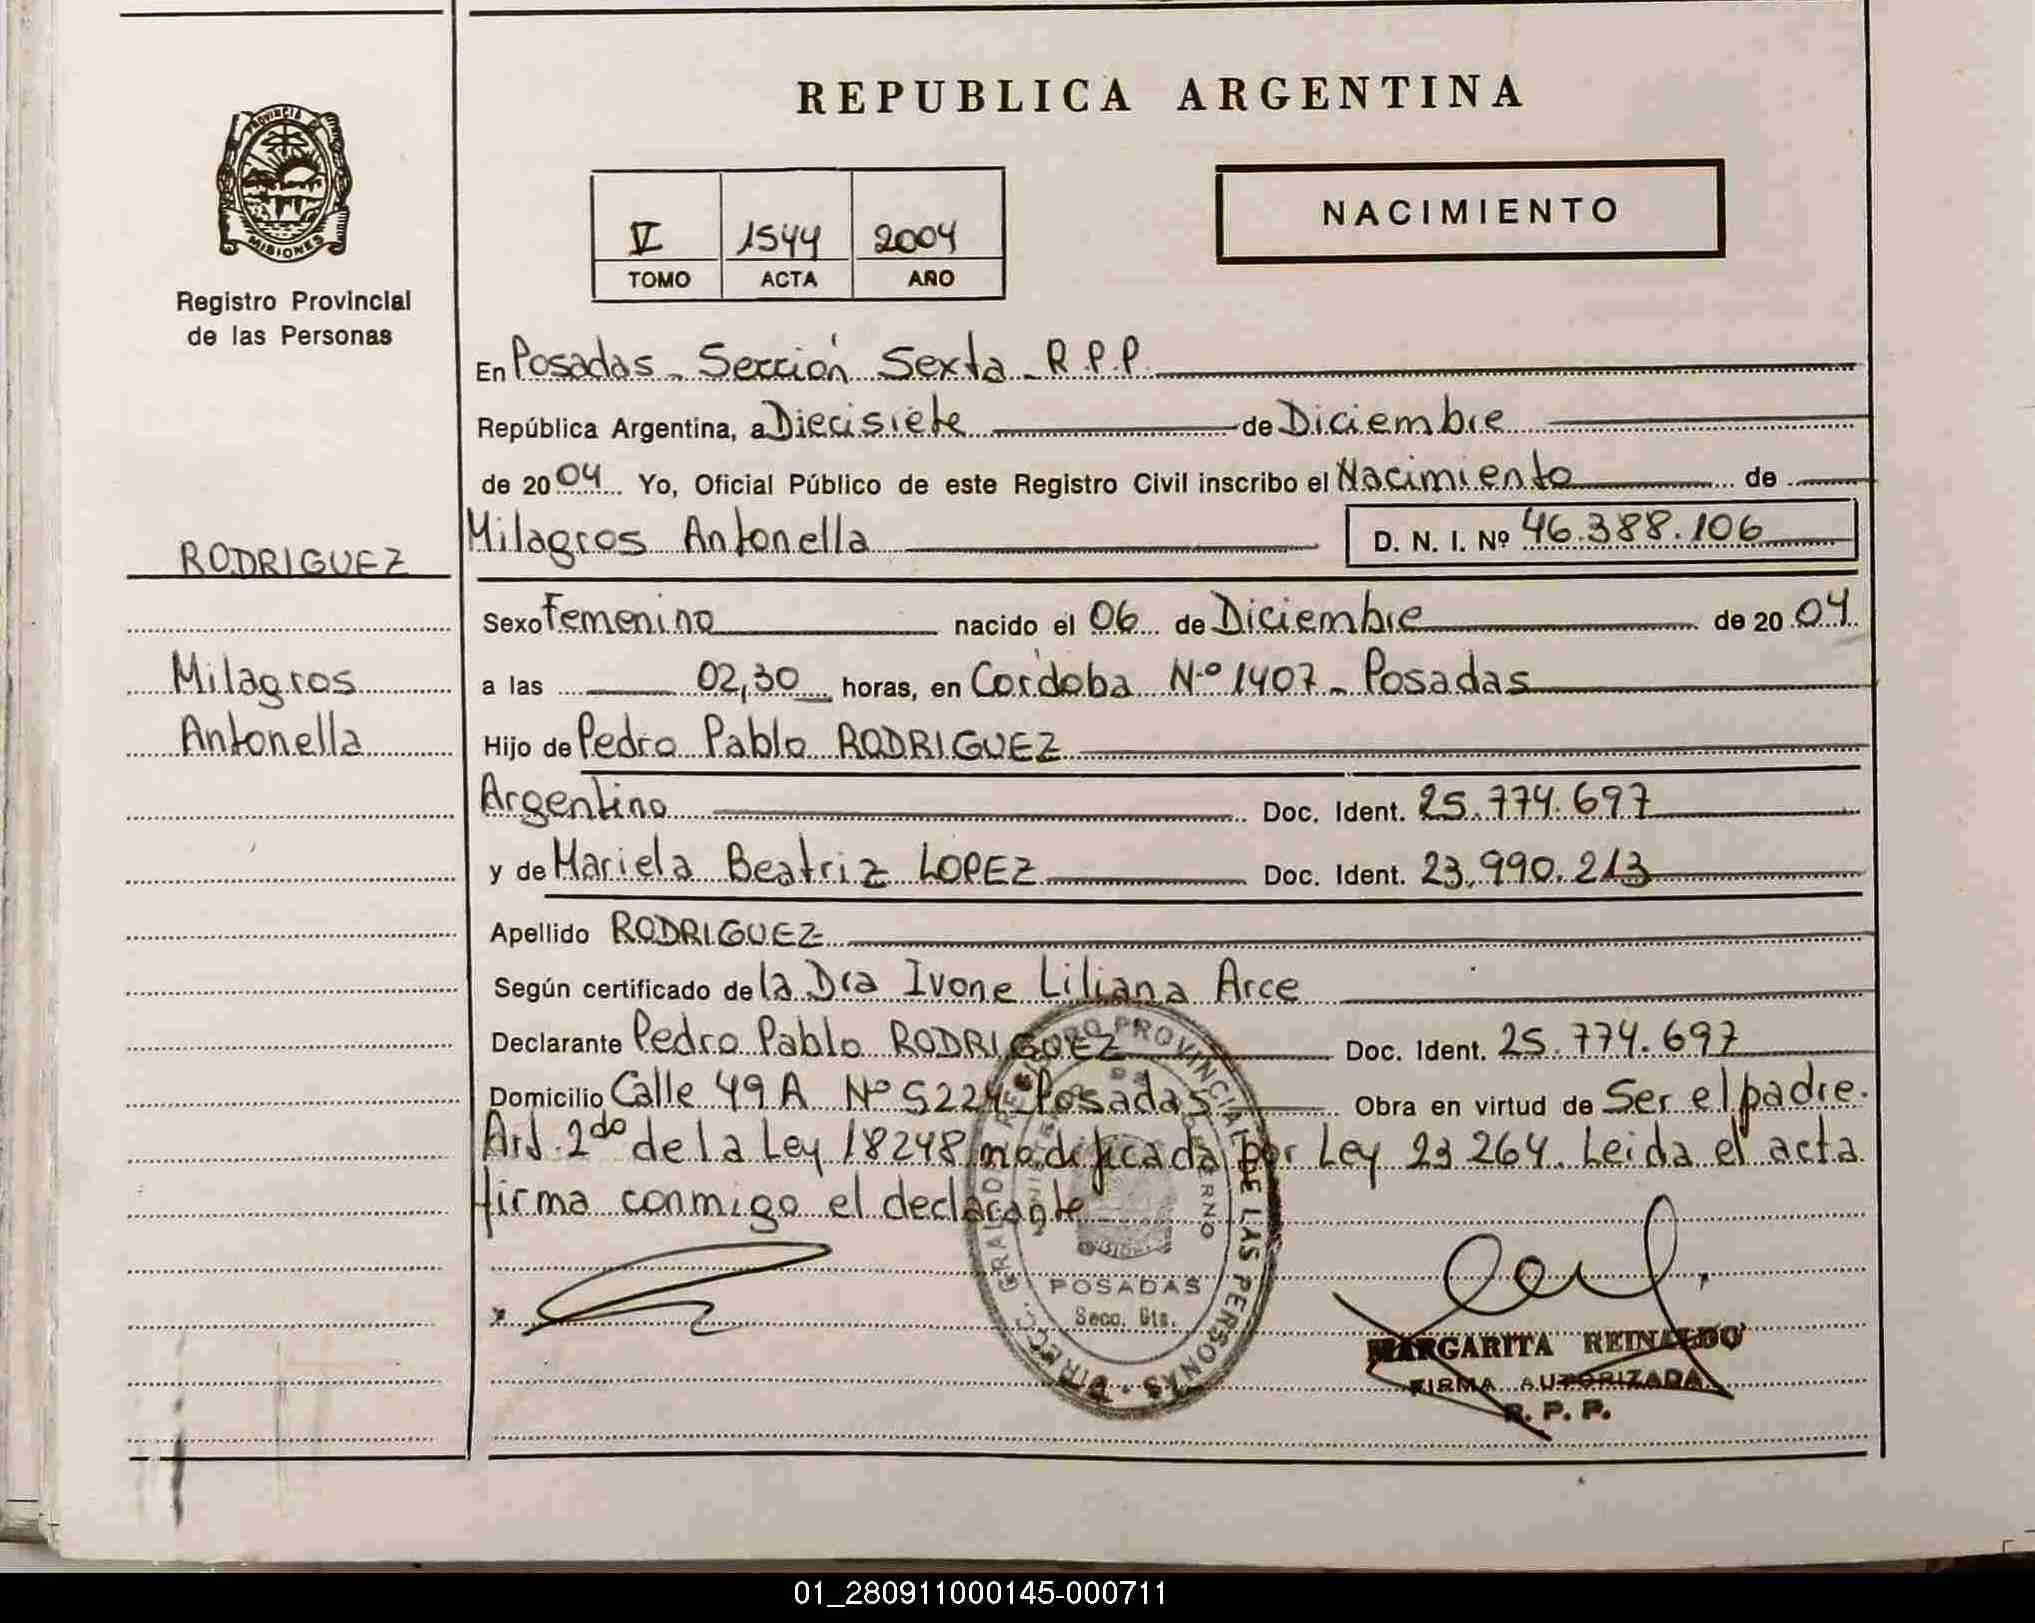 REPUBLICA ARGENTINA
PROVINCIA DE
MISIONES
Registro Provincial
de las Personas
NACIMIENTO
V 1544 2004
TOMO ACTA AÑO
En Posadas - Sección Sexta - R.P.P.
República Argentina, a Diecisiete de Diciembre
de 2004 Yo, Oficial Público de este Registro Civil inscribo el Nacimiento de
RODRIGUEZ
Milagros Antonella D. N. I. Nº 46.388.106
Sexo Femenino nacido el 06 de Diciembre de 2004
Milagros
a las 02,30 horas, en Cordoba Nº 1407 - Posadas
Antonella
Hijo de Pedro Pablo RODRIGUEZ
Argentino Doc. Ident. 25.774.697
y de Mariela Beatriz LOPEZ Doc. Ident. 23.990.213
Apellido RODRIGUEZ
Según certificado de la Dra Ivone Liliana Arce
Declarante Pedro Pablo RODRIGUEZ Doc. Ident. 25.774.697
Domicilio Calle 49 A Nº 5224 Posadas Obra en virtud de Ser el padre.
Art. 2do de la Ley 18248 modificada por Ley 23264. Leida el acta
firma conmigo el declarante
REGISTRO PROVINCIAL DE LAS PERSONAS
POSADAS
MARGARITA REINALDO
FIRMA AUTORIZADA
R. P. P.
01_280911000145-000711